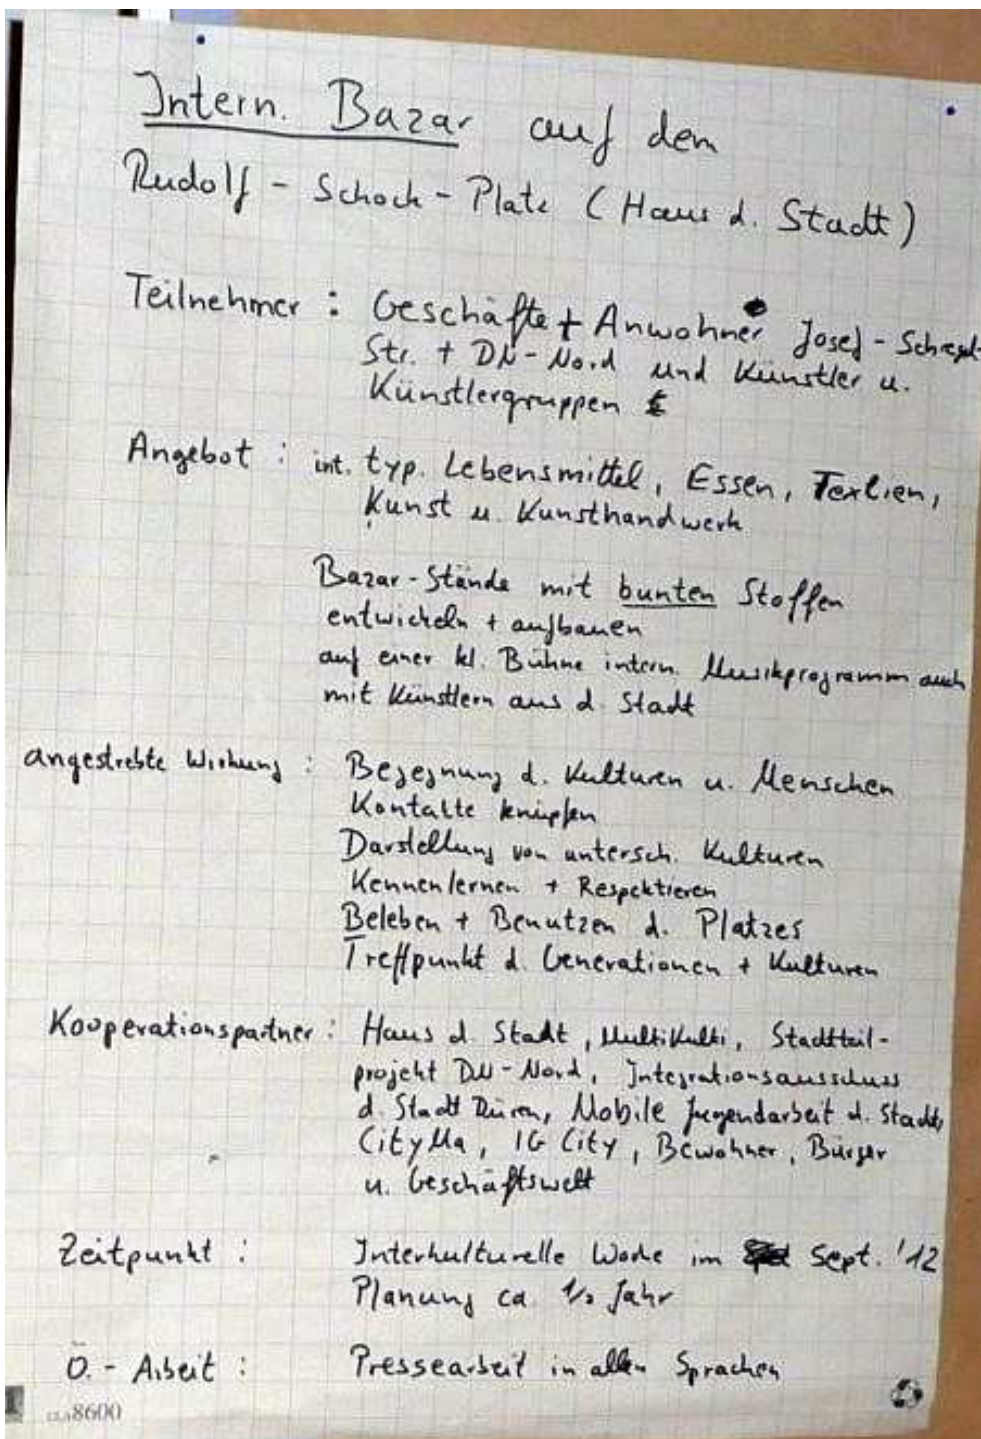 Intern. Bazar auf dem
Rudolf - Schock - Platz (Haus d. Stadt)
Teilnehmer : Geschäfte + Anwohner Josef - Schregel-
Str. + DN-Nord und Künstler u.
Künstlergruppen
Angebot : int. typ. Lebensmittel, Essen, Texlien,
Kunst u. Kunsthandwerk
Bazar-Stände mit bunten Stoffen
entwickeln + aufbauen
auf einer kl. Bühne intern. Musikprogramm auch
mit Künstlern aus d. Stadt
angestrebte Wirkung : Begegnung d. Kulturen u. Menschen
Kontakte knüpfen
Darstellung von untersch. Kulturen
Kennenlernen + Respektieren
Beleben + Benutzen d. Platzes
Treffpunkt d. Generationen + Kulturen
Kooperationspartner : Haus d. Stadt, MultiKulti, Stadtteil-
projekt DN-Nord, Integrationsausschuss
d. Stadt Düren, Mobile Jugendarbeit d. Stadt,
CityMa, IG City, Bewohner, Bürger
u. Geschäftswelt
Zeitpunkt : Interkulturelle Woche im Sept. '12
Planung ca. 1/2 Jahr
Ö. - Arbeit : Pressearbeit in allen Sprachen
8600